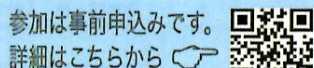 参加は事前申込みです。
詳細はこちらから